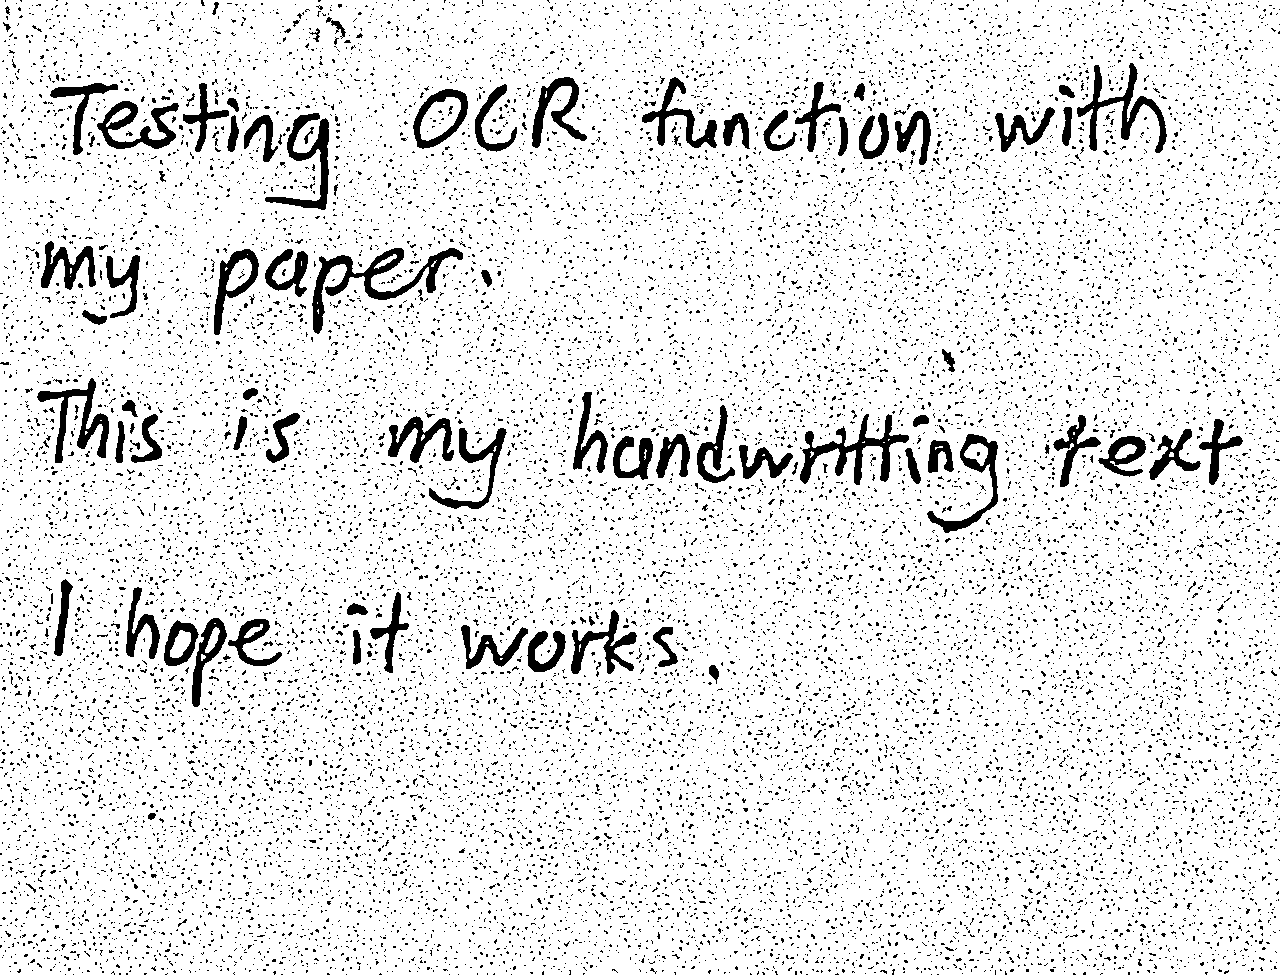 Testing OCR function with
my paper.
This is my handwritting text
I hope it works.